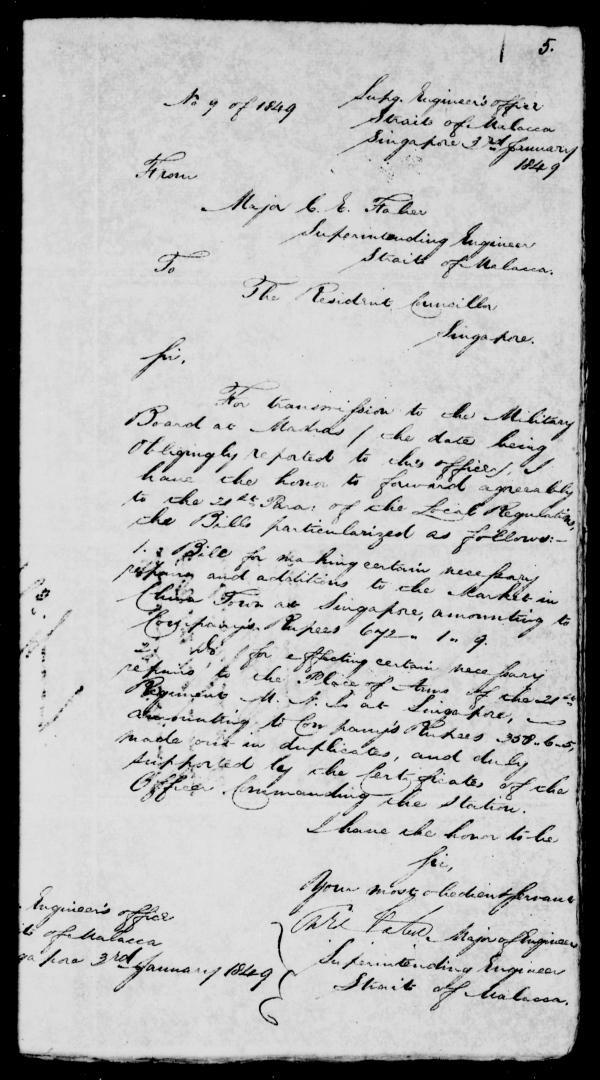 5.
No 9 of 1849
Supg. Engineer's office
Straits of Malacca
Singapore 3rd January
1849
From
Major C. E. Faber
Superintending Engineer
Straits of Malacca.
To
The Resident Councillor
Singapore.
Sir,
For transmission to the Military
Board at Madras / the date being
obligingly reported to this office /, I
have the honor to forward agreeably
to the 21st Para: of the Local Regulations,
the Bills particularized as follows:-
1. Bill for making certain necessary
repairs and additions to the Market in
China Town at Singapore, amounting to
Company's Rupees 672 " 1 " 9.
2. do for effecting certain necessary
repairs to the Place of Arms of the 21st
Regiment M. N. I. at Singapore,
amounting to Company's Rupees 358 " 6 " 5,
made out in duplicates, and duly
supported by the Certificates of the
Officer Commanding the Station.
I have the honor to be
Sir,
Your most obedient servant
Major of Engineers
Superintending Engineer
Straits of Malacca.
Engineer's office
ts of Malacca
gapore 3rd January 1849